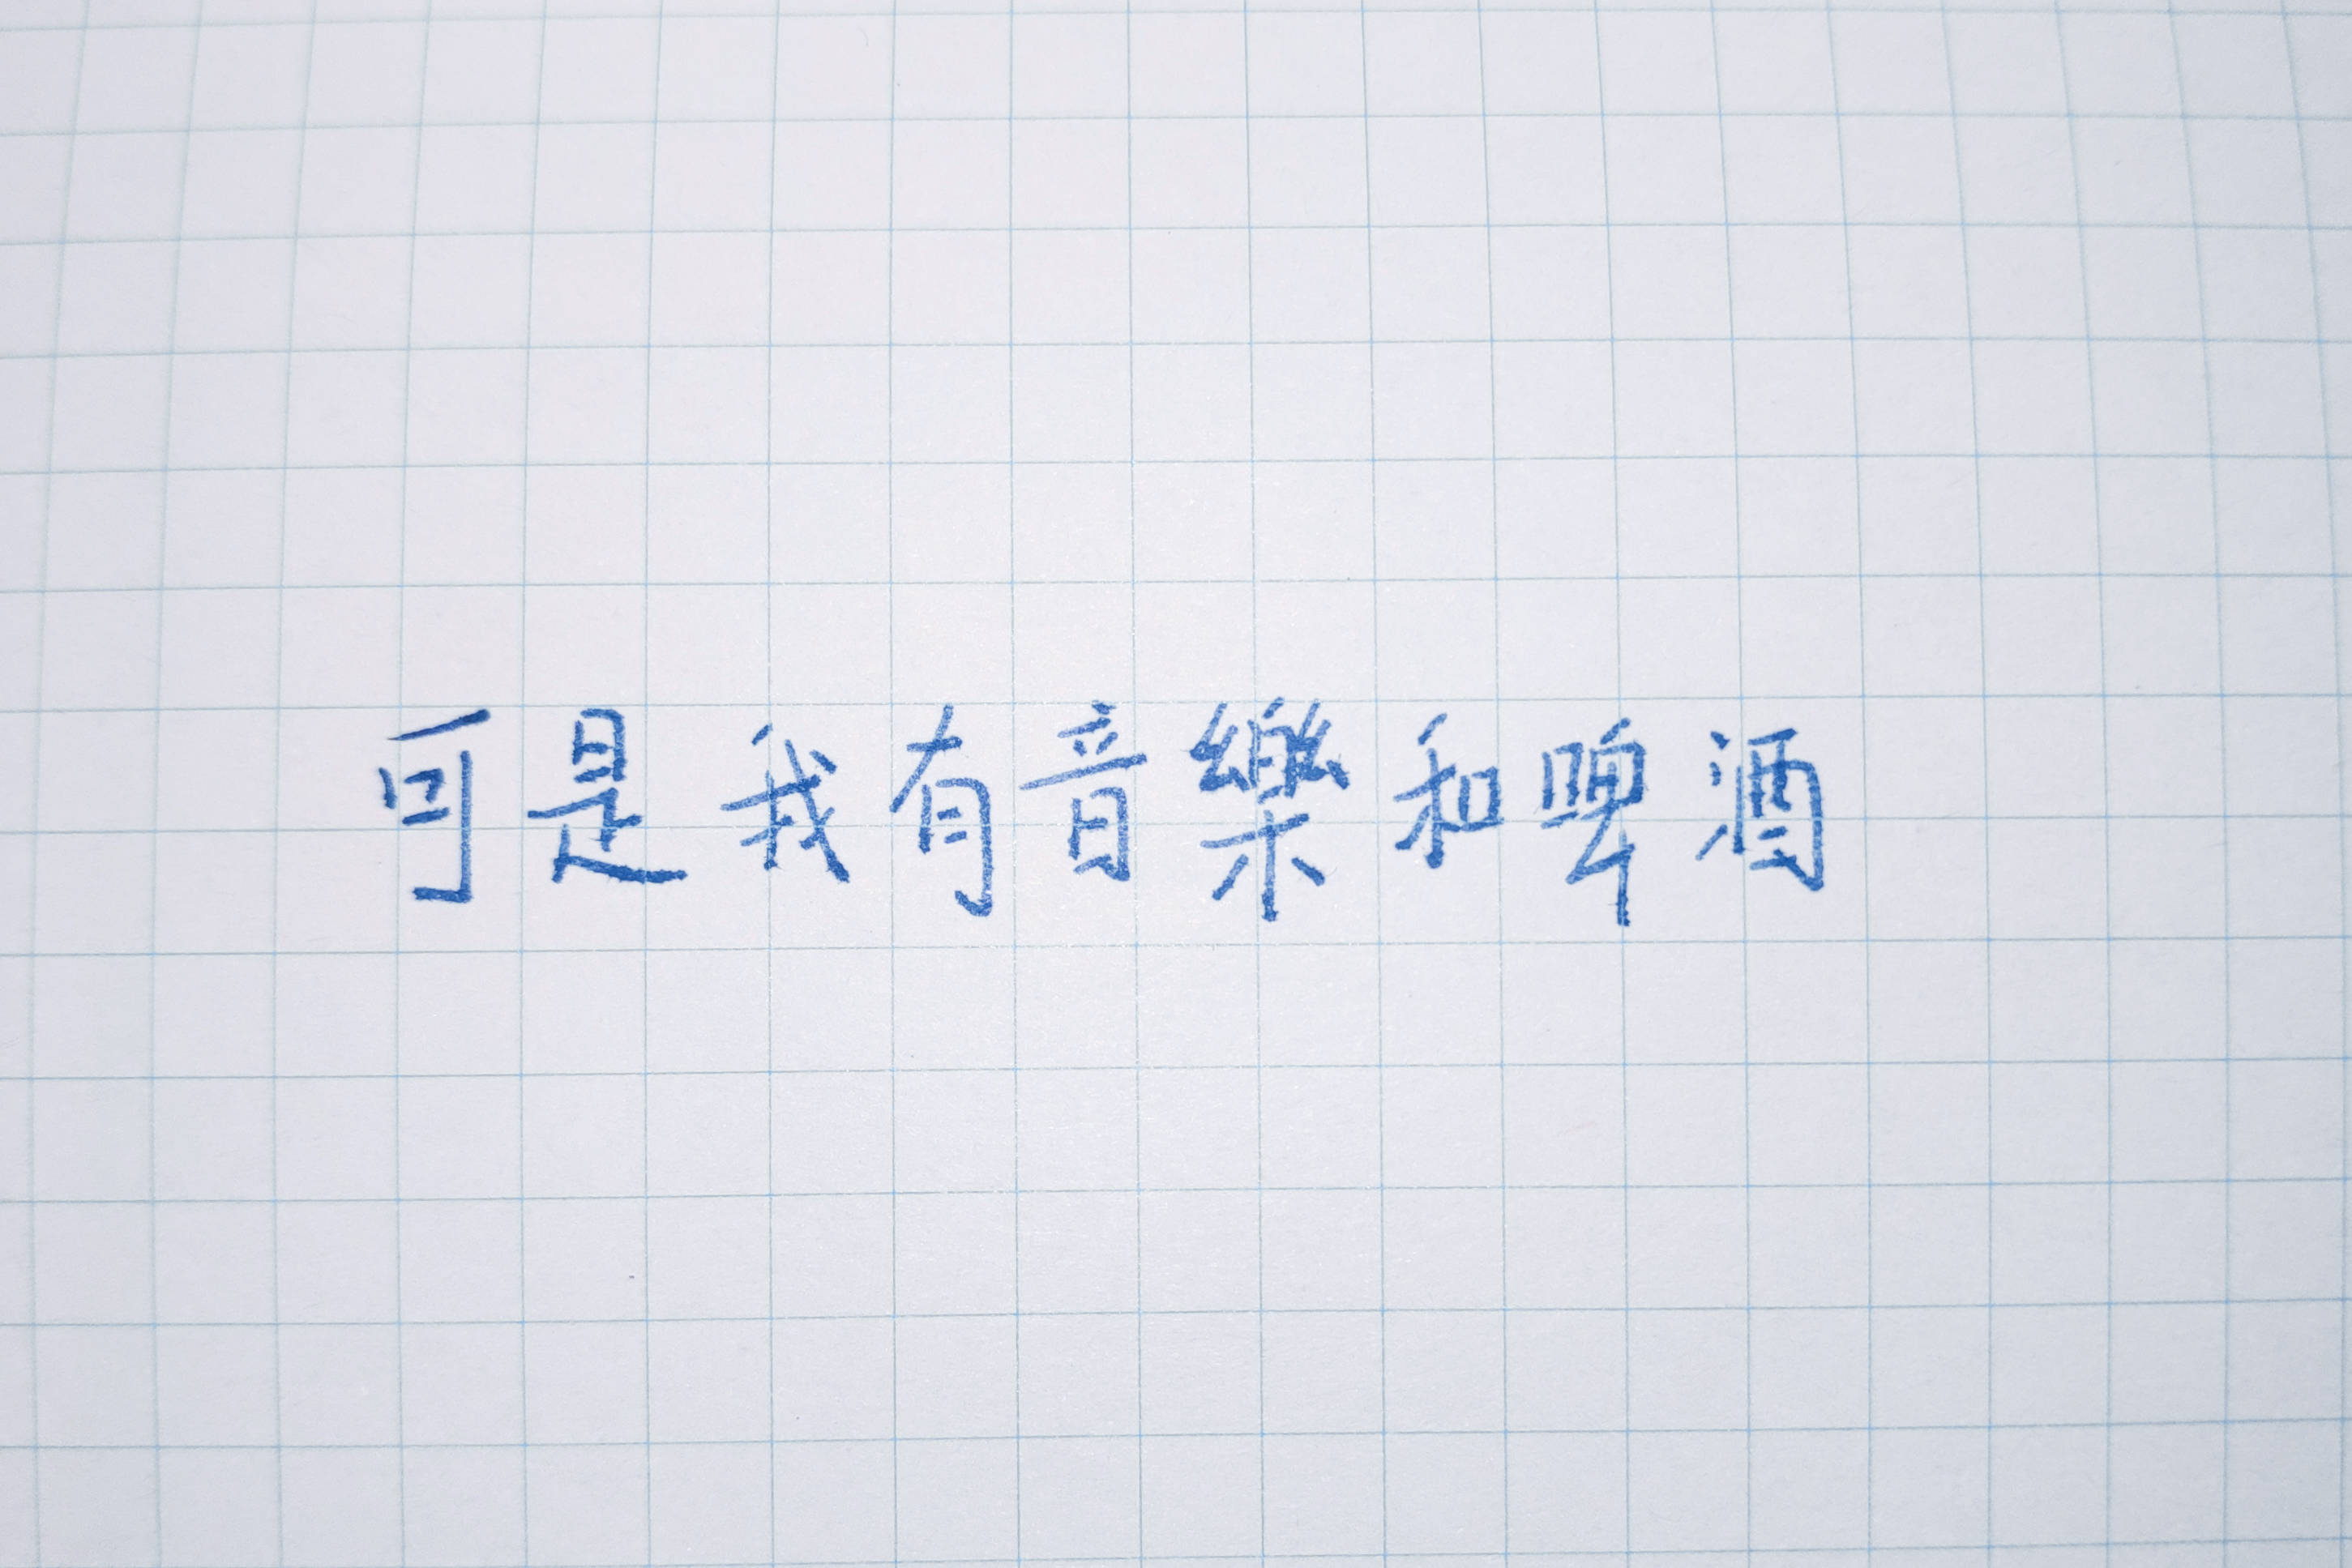 可是我有音樂和啤酒